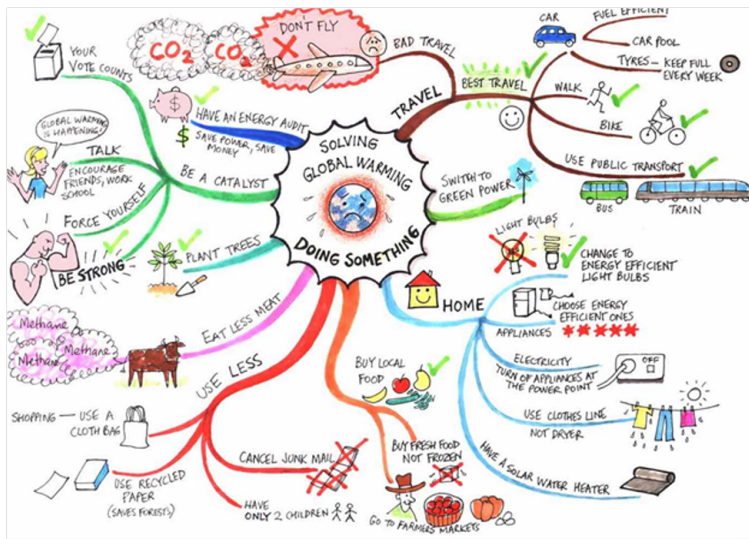 SOLVING
GLOBAL WARMING
DOING SOMETHING
TRAVEL
BAD TRAVEL
DON'T FLY
CO2
CO2
BEST TRAVEL
CAR
FUEL EFFICIENT
CAR POOL
TYRES - KEEP FULL
EVERY WEEK
WALK
BIKE
USE PUBLIC TRANSPORT
BUS
TRAIN
SWITH TO
GREEN POWER
HOME
LIGHT BULBS
CHANGE TO
ENERGY EFFICIENT
LIGHT BULBS
CHOOSE ENERGY
EFFICIENT ONES
APPLIANCES
ELECTRICITY
TURN OF APPLIANCES AT
THE POWER POINT
OFF
USE CLOTHES LINE
NOT DRYER
HAVE A SOLAR WATER HEATER
BUY LOCAL
FOOD
BUY FRESH FOOD
NOT FROZEN
GO TO FARMERS MARKETS
USE LESS
CANCEL JUNK MAIL
HAVE
ONLY 2 CHILDREN
SHOPPING — USE A
CLOTH BAG
USE RECYCLED
PAPER
(SAVES FORESTS)
EAT LESS MEAT
Methane
Methane
Methane
PLANT TREES
BE A CATALYST
YOUR
VOTE COUNTS
GLOBAL WARMING
IS HAPPENING!
TALK
ENCOURAGE
FRIENDS, WORK
SCHOOL
FORCE YOURSELF
BE STRONG
HAVE AN ENERGY AUDIT
$
$ SAVE POWER, SAVE
MONEY